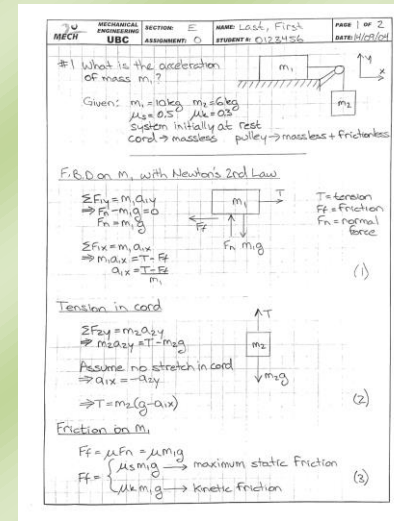 20 MECH
MECHANICAL ENGINEERING UBC
SECTION: E
ASSIGNMENT: 0
NAME: Last, First
STUDENT #: 0123456
PAGE 1 OF 2
DATE: 14/09/04
#1 What is the acceleration
of mass m₁?
m₁
m₂
y
x
Given: m₁=10kg m₂=6kg
μs=0.5 μk=0.3
system initially at rest
cord → massless pulley → massless + frictionless
F.B.D on m₁ with Newton's 2nd Law
ΣF₁y=m₁a₁y
⇒ Fn-m₁g=0
Fn=m₁g
ΣF₁x=m₁a₁x
⇒ m₁a₁x=T-Ff
a₁x=T-Ff/m₁
m₁
T
Ff
Fn m₁g
T=tension
Ff=friction
Fn=normal
force
(1)
Tension in cord
ΣF₂y=m₂a₂y
⇒ m₂a₂y=T-m₂g
Assume no stretch in cord
⇒ a₁x=-a₂y
⇒ T=m₂(g-a₁x)
T
m₂
m₂g
(2)
Friction on m₁
Ff=μFn=μm₁g
Ff={μsm₁g → maximum static friction
μkm₁g → kinetic friction
(3)